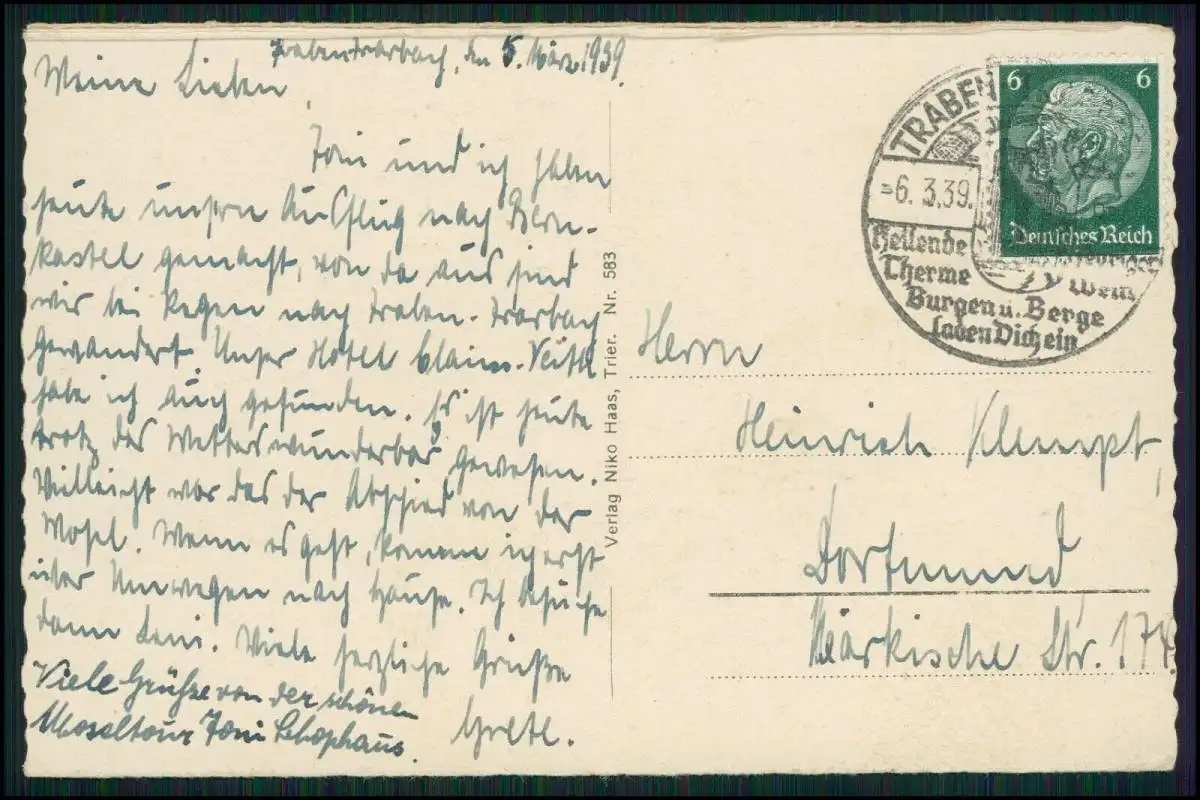 Traben-Trarbach, den 5. März 1939.
Meine Lieben
Toni und ich haben
heute unsern Ausflug nach Bern-
kastel gemacht, von da aus sind
wir bei Regen nach Traben-Trarbach
gewandert. Unser Hotel Claus-Veith
habe ich auch gefunden. Es ist heute
trotz des Wetters wunderbar gewesen.
Vielleicht war das der Abschied von der
Mosel. Wenn es geht, komme ich erst
über Umwegen nach Hause. Ich besuche
dann Leni. Viele herzliche Grüße
Grete.
Viele Grüsse von der schönen
Moseltour Toni Schophaus.
Verlag Niko Haas, Trier. Nr. 583
6 6
Deutsches Reich
TRABEN
-6. 3.39.
Heilende
Therme
Wein
Burgen u. Berge
laden Dich ein
Herrn
Heinrich Klempt,
Dortmund
Märkische Str. 178